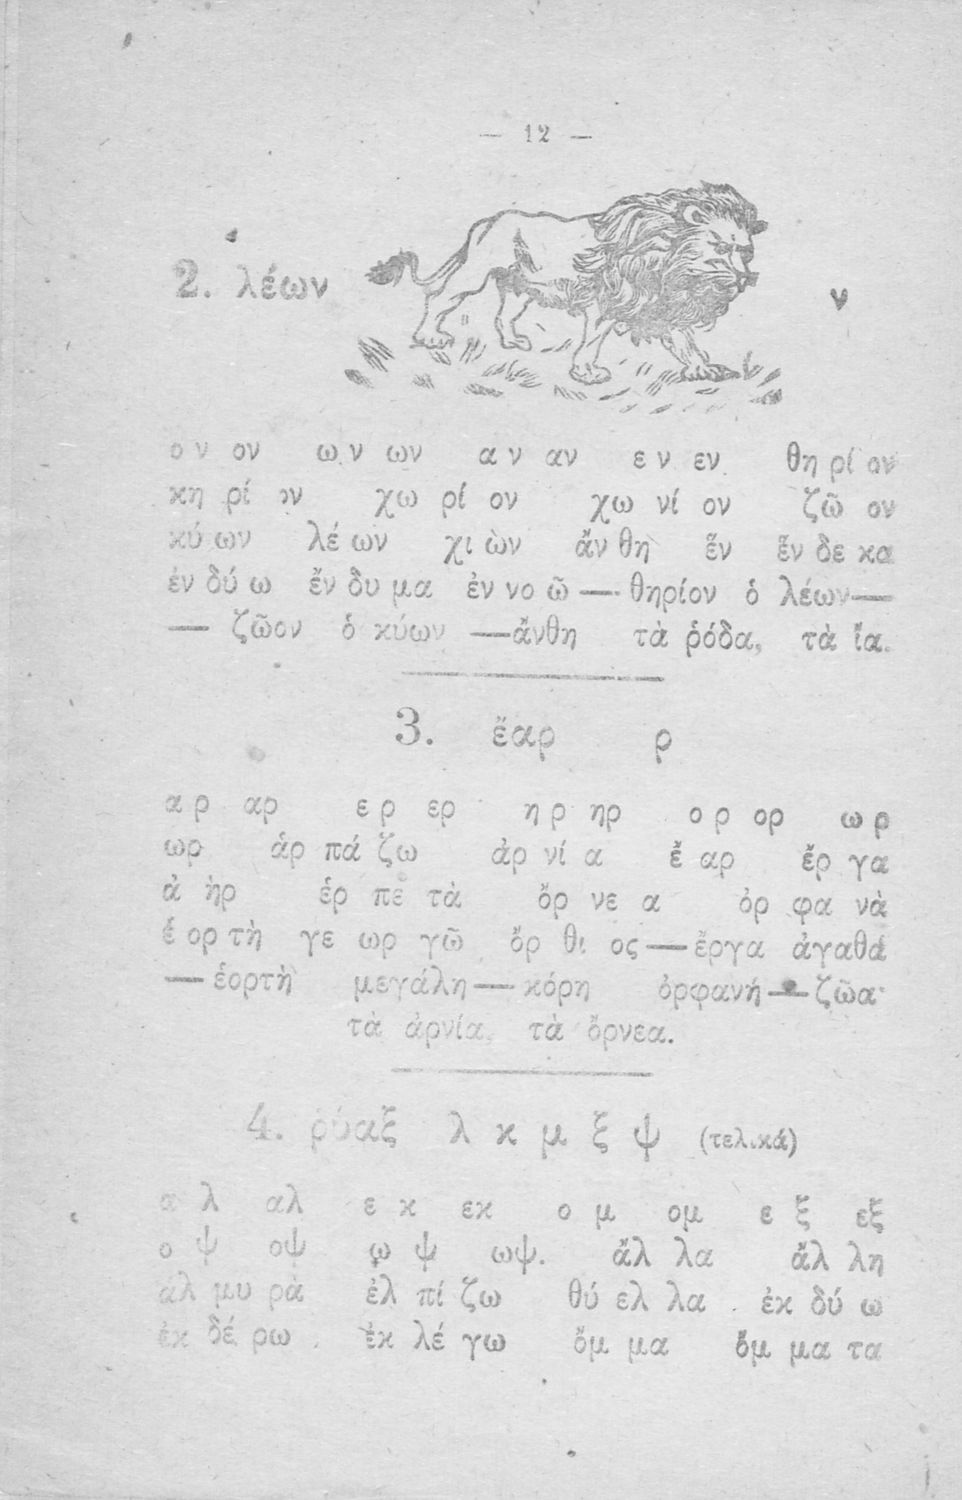 — 12 —
2. λέων ν
ο ν ον ω ν ων α ν αν ε ν εν θη ρί ον
κη ρί ον χω ρί ον χω νί ον ζῶ ον
κύ ων λέ ων χι ὼν ἄν θη ἕν ἕν δε κα
ἐν δύ ω ἔν δυ μα ἐν νο ῶ — θηρίον ὁ λέων—
— ζῶον ὁ κύων —ἄνθη τὰ ῥόδα, τὰ ἴα.
3. ἔαρ ρ
α ρ αρ ε ρ ερ η ρ ηρ ο ρ ορ ω ρ
ωρ ἁρ πά ζω ἀρ νί α ἔ αρ ἔρ γα
ἀ ὴρ ἑρ πε τὰ ὄρ νε α ὀρ φα νὰ
ἑ ορ τὴ γε ωρ γῶ ὄρ θι ος — ἔργα ἀγαθά
— ἑορτὴ μεγάλη — κόρη ὀρφανή — ζῶα·
τὰ ἀρνία, τὰ ὄρνεα.
4. ῥύαξ λ κ μ ξ ψ (τελικά)
α λ αλ ε κ εκ ο μ ομ ε ξ εξ
ο ψ οψ ω ψ ωψ. ἄλ λα ἄλ λη
ἁλ μυ ρὰ ἐλ πί ζω θύ ελ λα ἐκ δύ ω
ἐκ δέ ρω ἐκ λέ γω ὄμ μα ὄμ μα τα